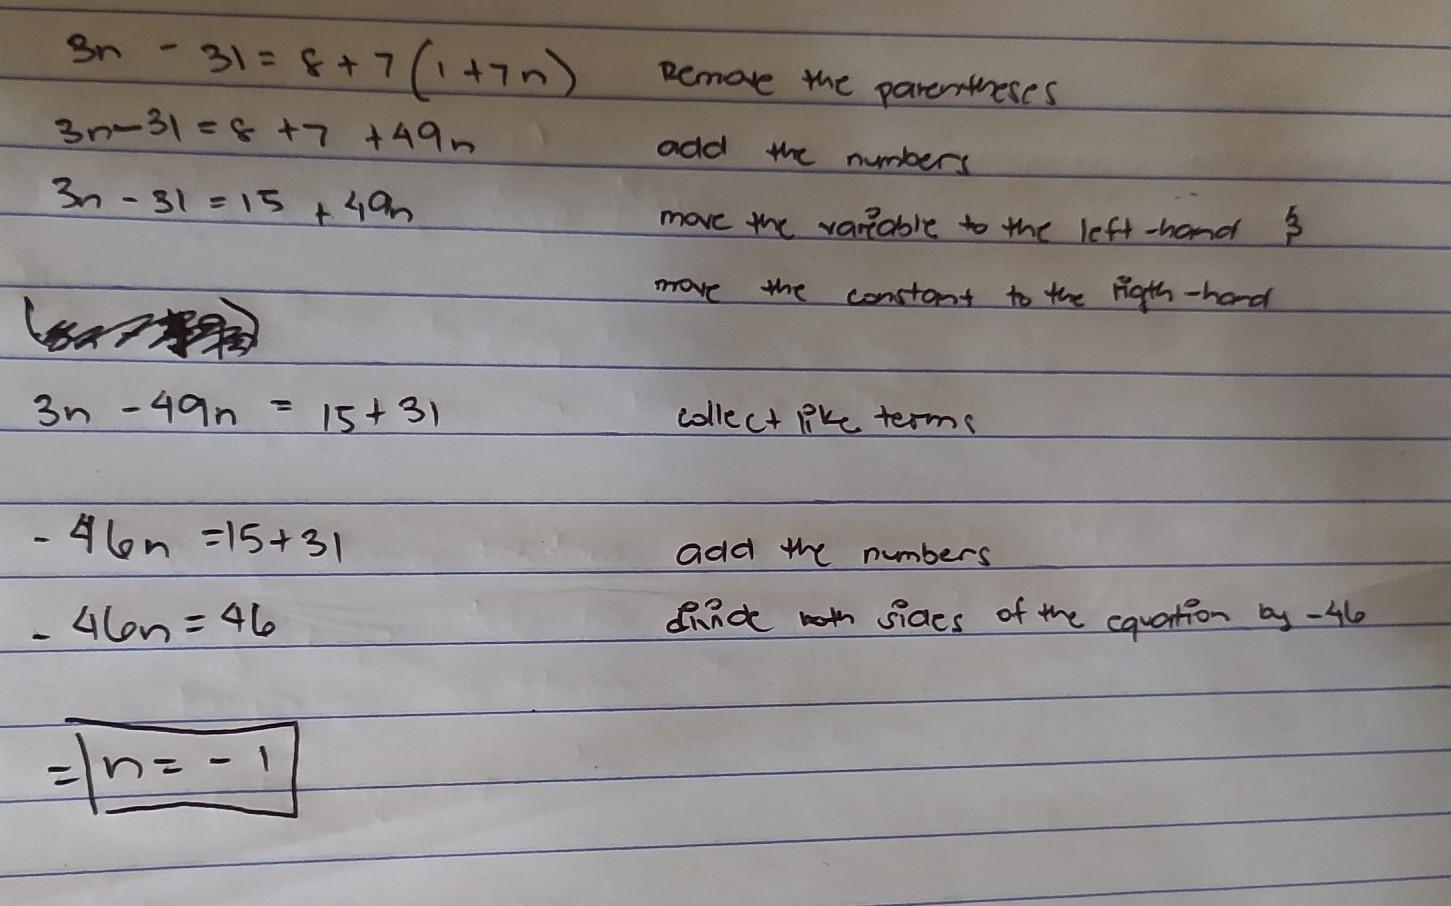 3n - 31 = 8 + 7 (1 + 7n) Remove the parentheses
3n - 31 = 8 + 7 + 49n add the numbers
3n - 31 = 15 + 49n move the variable to the left-hand &
move the constant to the rigth-hand
3n - 49n = 15 + 31 collect like terms
- 46n = 15 + 31 add the numbers
- 46n = 46 divide both sides of the equation by -46
= n = - 1